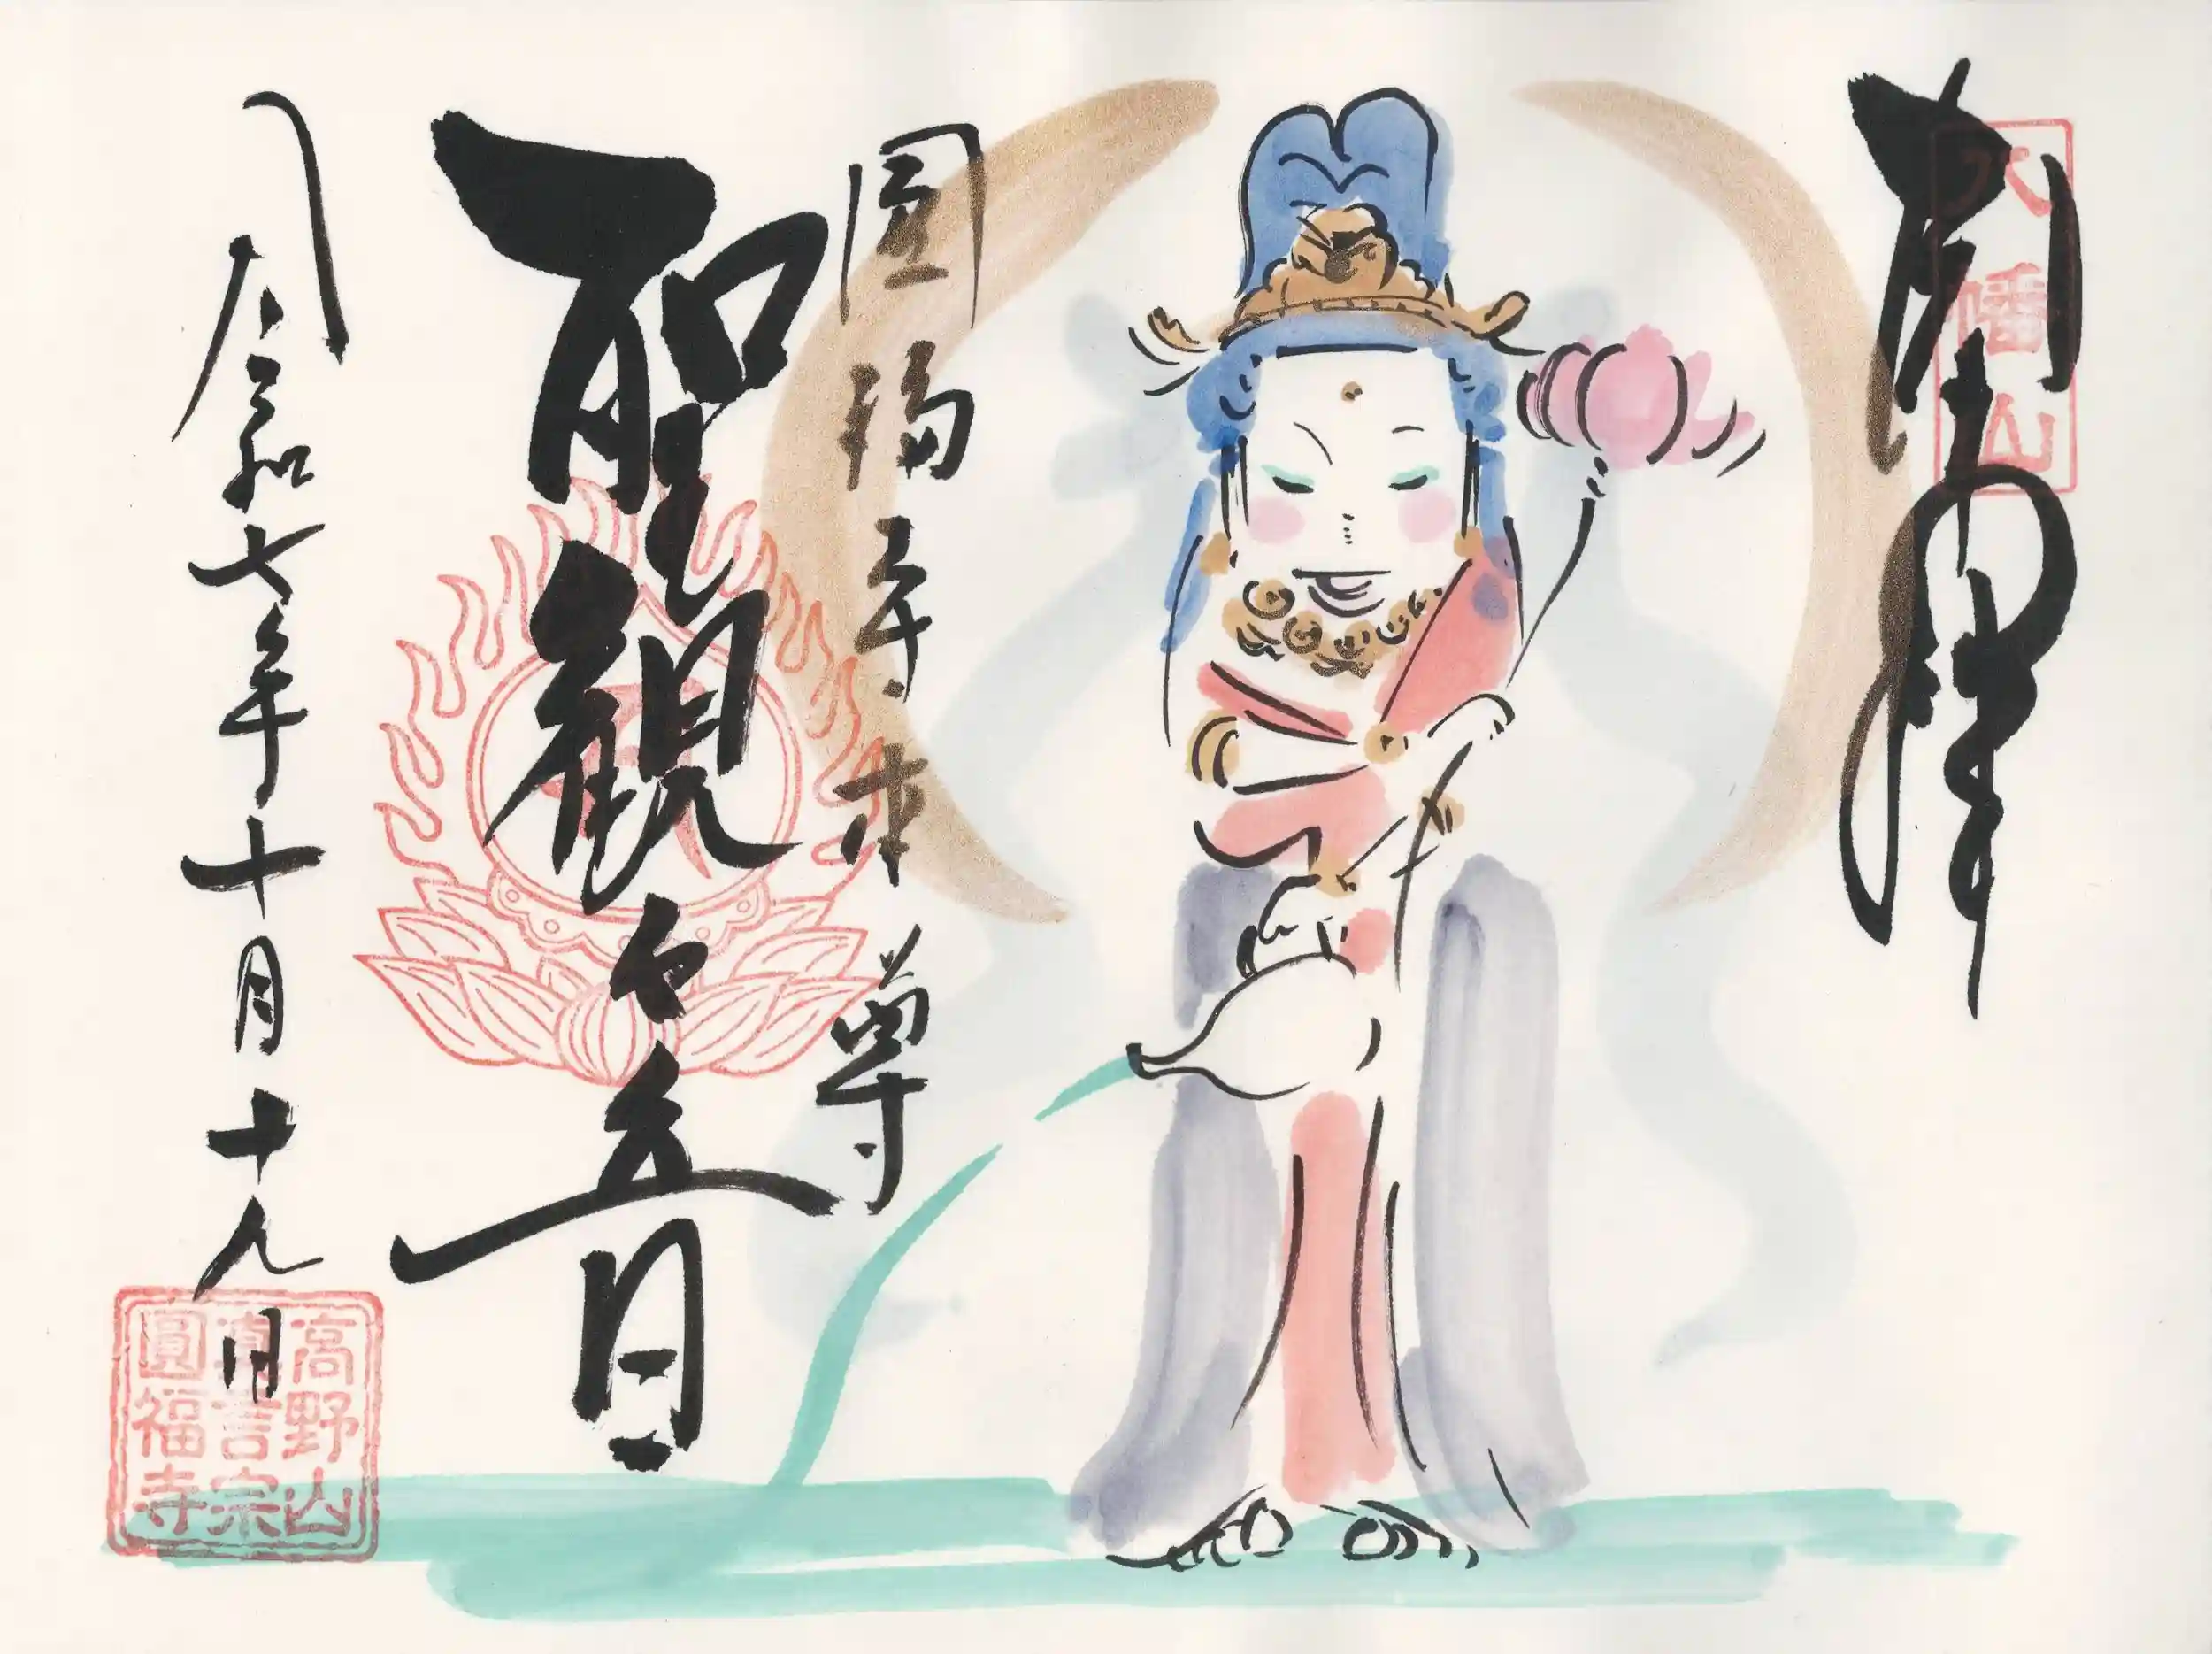 八幡山
圓福寺本尊
聖観世音
令和七年十月十九日
高野山
真言宗
圓福寺